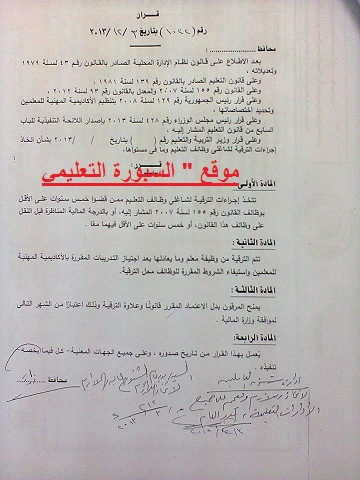 قرار
رقم (١٠٢٢) بتاريخ ٣ /١٢/ ٢٠١٣
محافظ
بعد الاطلاع على قانون نظام الإدارة المحلية الصادر بالقانون رقم ٤٣ لسنة ١٩٧٩
وتعديلاته ،
وعلى قانون التعليم الصادر بالقانون رقم ١٣٩ لسنة ١٩٨١ ،
وعلى القانون رقم ١٥٥ لسنة ٢٠٠٧ والمعدل بالقانون رقم ٩٣ لسنة ٢٠١٢ ،
وعلى قرار رئيس الجمهورية رقم ١٢٩ لسنة ٢٠٠٨ بتنظيم الأكاديمية المهنية للمعلمين
وتحديد اختصاصاتها ،
وعلى قرار رئيس مجلس الوزراء رقم ٤٢٨ لسنة ٢٠١٣ بإصدار اللائحة التنفيذية للباب
السابع من قانون التعليم المشار إليه ،
وعلى قرار وزير التربية والتعليم رقم ( ) بتاريخ / /٢٠١٣ بشأن اتخاذ
إجراءات الترقية لشاغلي وظائف التعليم وما فى مستواها،
قرر:
موقع " السبورة التعليمي
المادة الأولى:
تتخذ إجراءات الترقية لشاغلى وظائف التعليم ممن قضوا خمس سنوات على الأقل
بوظائف القانون رقم ١٥٥ لسنة ٢٠٠٧ المشار إليه، أو بالدرجة المالية المناظرة قبل النقل
على وظائف هذا القانون، أو خمس سنوات على الأقل فيهما معًا .
المادة الثانية:
تتم الترقية من وظيفة معلم وما يعادلها بعد اجتياز التدريبات المقررة بالأكاديمية المهنية
للمعلمين واستيفاء الشروط المقررة للوظائف محل الترقية.
المادة الثالثة:
يمنح المرقون بدل الاعتماد المقرر قانونًا وعلاوة الترقية وذلك اعتبارًا من الشهر التالى
لموافقة وزارة المالية .
المادة الرابعة:
يُعمل بهذا القرار من تاريخ صدوره ، وعلى جميع الجهات المعنية- كل فيما يخصه-
تنفيذه .
محافظ